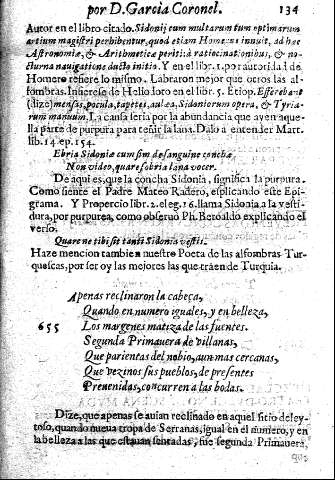 por D. Garcia Coronel. 134
Autor en el libro citado. Sidonij cum multarum tum optimarum
artium magistri perhibentur, quod etiam Homerus innuit, ad hæc
Astronomiæ, & Arithmetica peritiâ ratiocinationibus, & no-
cturna nauigatione ducto initio. Y en el libr. 1. por autoridad de
Homero refiere lo mismo. Labraron mejor que otros las al-
fombras. Infierese de Heliodoro en el libr. 5. Etiop. Efferebant
(dize) mensas, pocula, tapetes, aulea, Sidoniorum opera, & Tyria-
rum manuum. La causa seria por la abundancia que auia en aque-
lla parte de purpura para teñir la lana. Dalo a entender Mart.
lib. 14. ep. 154.
Ebria Sidoniæ cum sim de sanguine conchæ,
Non video, quare sobria lana vocer.
De aqui es, que la concha Sidonia, significa la purpura.
Como siente el Padre Mateo Radero, esplicando este Epi-
grama. Y Propercio libr. 2. eleg. 16. llama Sidonia a la vesti-
dura, por purpurea, como obseruò Ph. Beroaldo explicando el
verso.
Quare ne tibi sit tanti Sidonia vestis.
Haze mencion tambien nuestro Poeta de las alfombras Tur-
quescas, por ser oy las mejores las que traen de Turquia.
Apenas reclinaron la cabeça,
Quando en numero iguales, y en belleza,
655 Los margenes matiza de las fuentes.
Segunda Primauera de villanas,
Que parientas del nobio, aun mas cercanas,
Que vezinos sus pueblos, de presentes
Preuenidas, concurren a las bodas.
Dize, que apenas se auian reclinado en aquel sitio deley-
toso, quando nueua tropa de Serranas, igual en el numero, y en
la belleza a las que estauan sentadas, fue segunda Primauera,